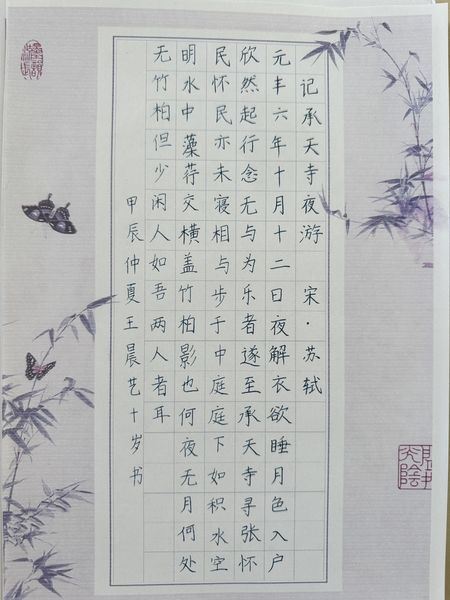 记承天寺夜游 宋·苏轼
元丰六年十月十二日夜解衣欲睡月色入户
欣然起行念无与为乐者遂至承天寺寻张怀
民怀民亦未寝相与步于中庭庭下如积水空
明水中藻荇交横盖竹柏影也何夜无月何处
无竹柏但少闲人如吾两人者耳
甲辰仲夏王晨艺十岁书